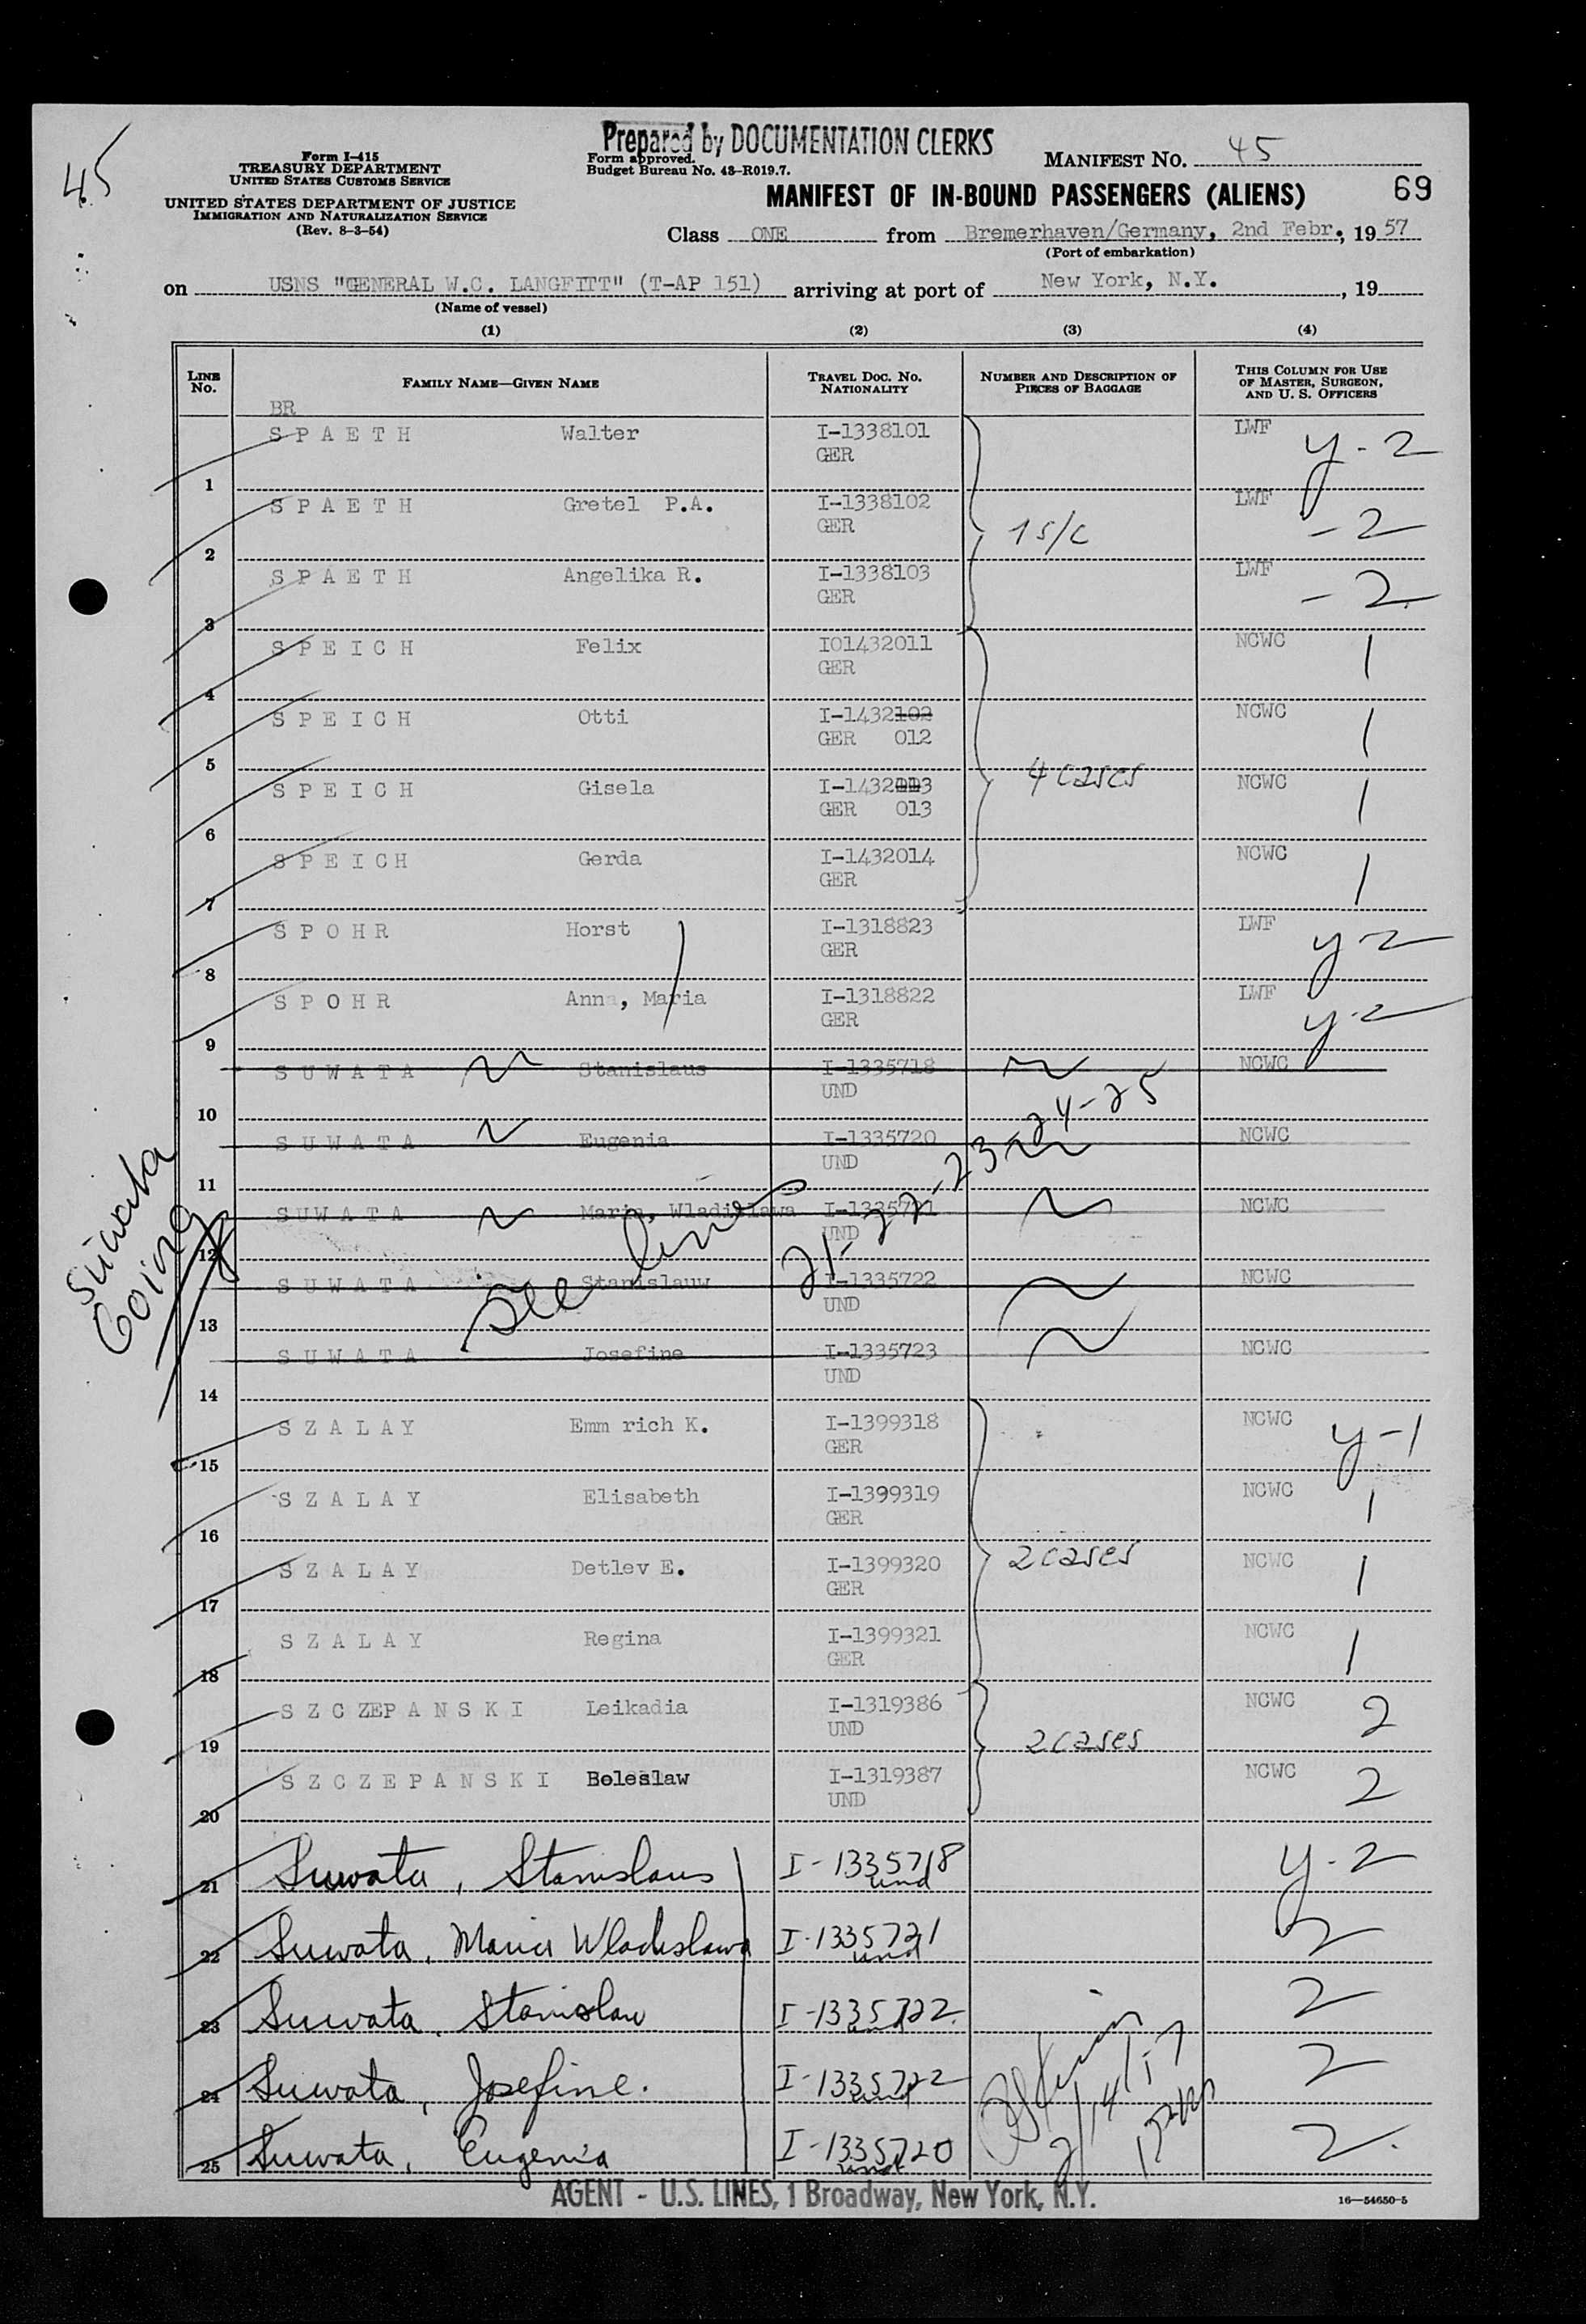 45
Prepared by DOCUMENTATION CLERKS
Form I-415
TREASURY DEPARTMENT
UNITED STATES CUSTOMS SERVICE
UNITED STATES DEPARTMENT OF JUSTICE
IMMIGRATION AND NATURALIZATION SERVICE
(Rev. 8-3-54)
Form approved.
Budget Bureau No. 43-R019.7.
MANIFEST NO. 45
MANIFEST OF IN-BOUND PASSENGERS (ALIENS) 69
Class ONE from Bremerhaven/Germany, 2nd Febr., 1957
(Port of embarkation)
on USNS "GENERAL W.C. LANGFITT" (T-AP 151) arriving at port of New York, N.Y., 19
(Name of vessel)
(1) (2) (3) (4)
LINE No. FAMILY NAME—GIVEN NAME TRAVEL DOC. NO. NATIONALITY NUMBER AND DESCRIPTION OF PIECES OF BAGGAGE THIS COLUMN FOR USE OF MASTER, SURGEON, AND U. S. OFFICERS
BR
1 SPAETH Walter I-1338101 GER LWF y-2
2 SPAETH Gretel P.A. I-1338102 GER 1 s/c LWF -2
3 SPAETH Angelika R. I-1338103 GER LWF -2
4 SPEICH Felix I01432011 GER NCWC 1
5 SPEICH Otti I-1432102 GER 012 NCWC 1
6 SPEICH Gisela I-1432113 GER 013 4 cases NCWC 1
7 SPEICH Gerda I-1432014 GER NCWC 1
8 SPOHR Horst I-1318823 GER LWF y-2
9 SPOHR Anna, Maria I-1318822 GER LWF y-2
10 SUWATA Stanislaus I-1335718 UND NCWC
11 SUWATA Eugenia I-1335720 UND NCWC
12 SUWATA Maria, Wladislawa I-1335721 UND NCWC
13 SUWATA Stanislauw I-1335722 UND NCWC
14 SUWATA Josefine I-1335723 UND NCWC
See lines 21-22-23-24-25
Suwata
Going
15 SZALAY Emm rich K. I-1399318 GER NCWC y-1
16 SZALAY Elisabeth I-1399319 GER NCWC 1
17 SZALAY Detlev E. I-1399320 GER 2 cases NCWC 1
18 SZALAY Regina I-1399321 GER NCWC 1
19 SZCZEPANSKI Leikadia I-1319386 UND 2 cases NCWC 2
20 SZCZEPANSKI Boleslaw I-1319387 UND NCWC 2
21 Suwata, Stanislaus I-1335718 und y-2
22 Suwata, Maria Wladislawa I-1335721 und 2
23 Suwata, Stanislaw I-1335722 und 2
24 Suwata, Josefine. I-1335722 und 2
25 Suwata, Eugenia I-1335720 und 2.
2/14/57
AGENT - U.S. LINES, 1 Broadway, New York, N.Y.
16—54650-5